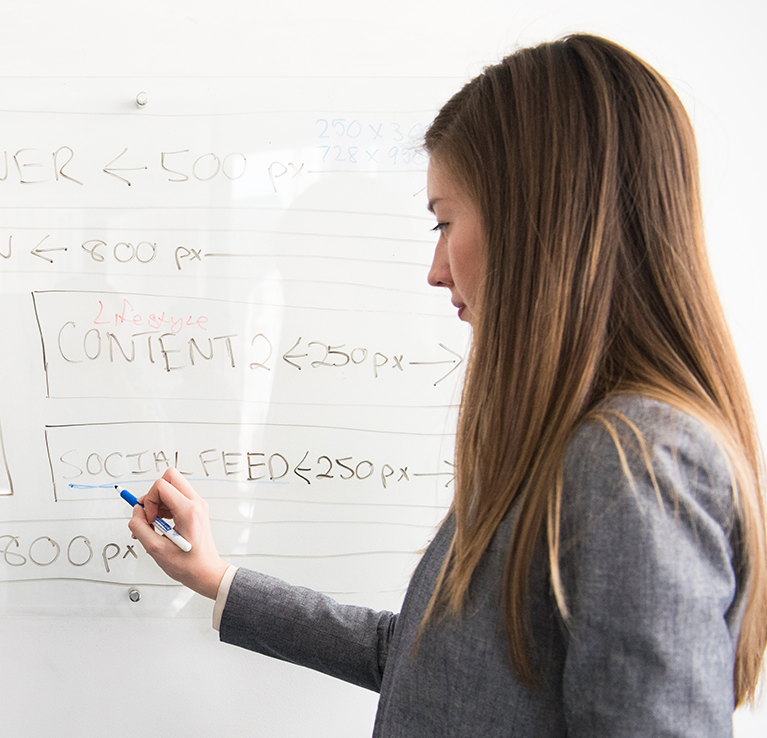 250 x
728 x
NER ← 500 px
← 800 px
Lifestyle
CONTENT 2 ← 250px →
SOCIAL FEED ← 250 px →
800 px